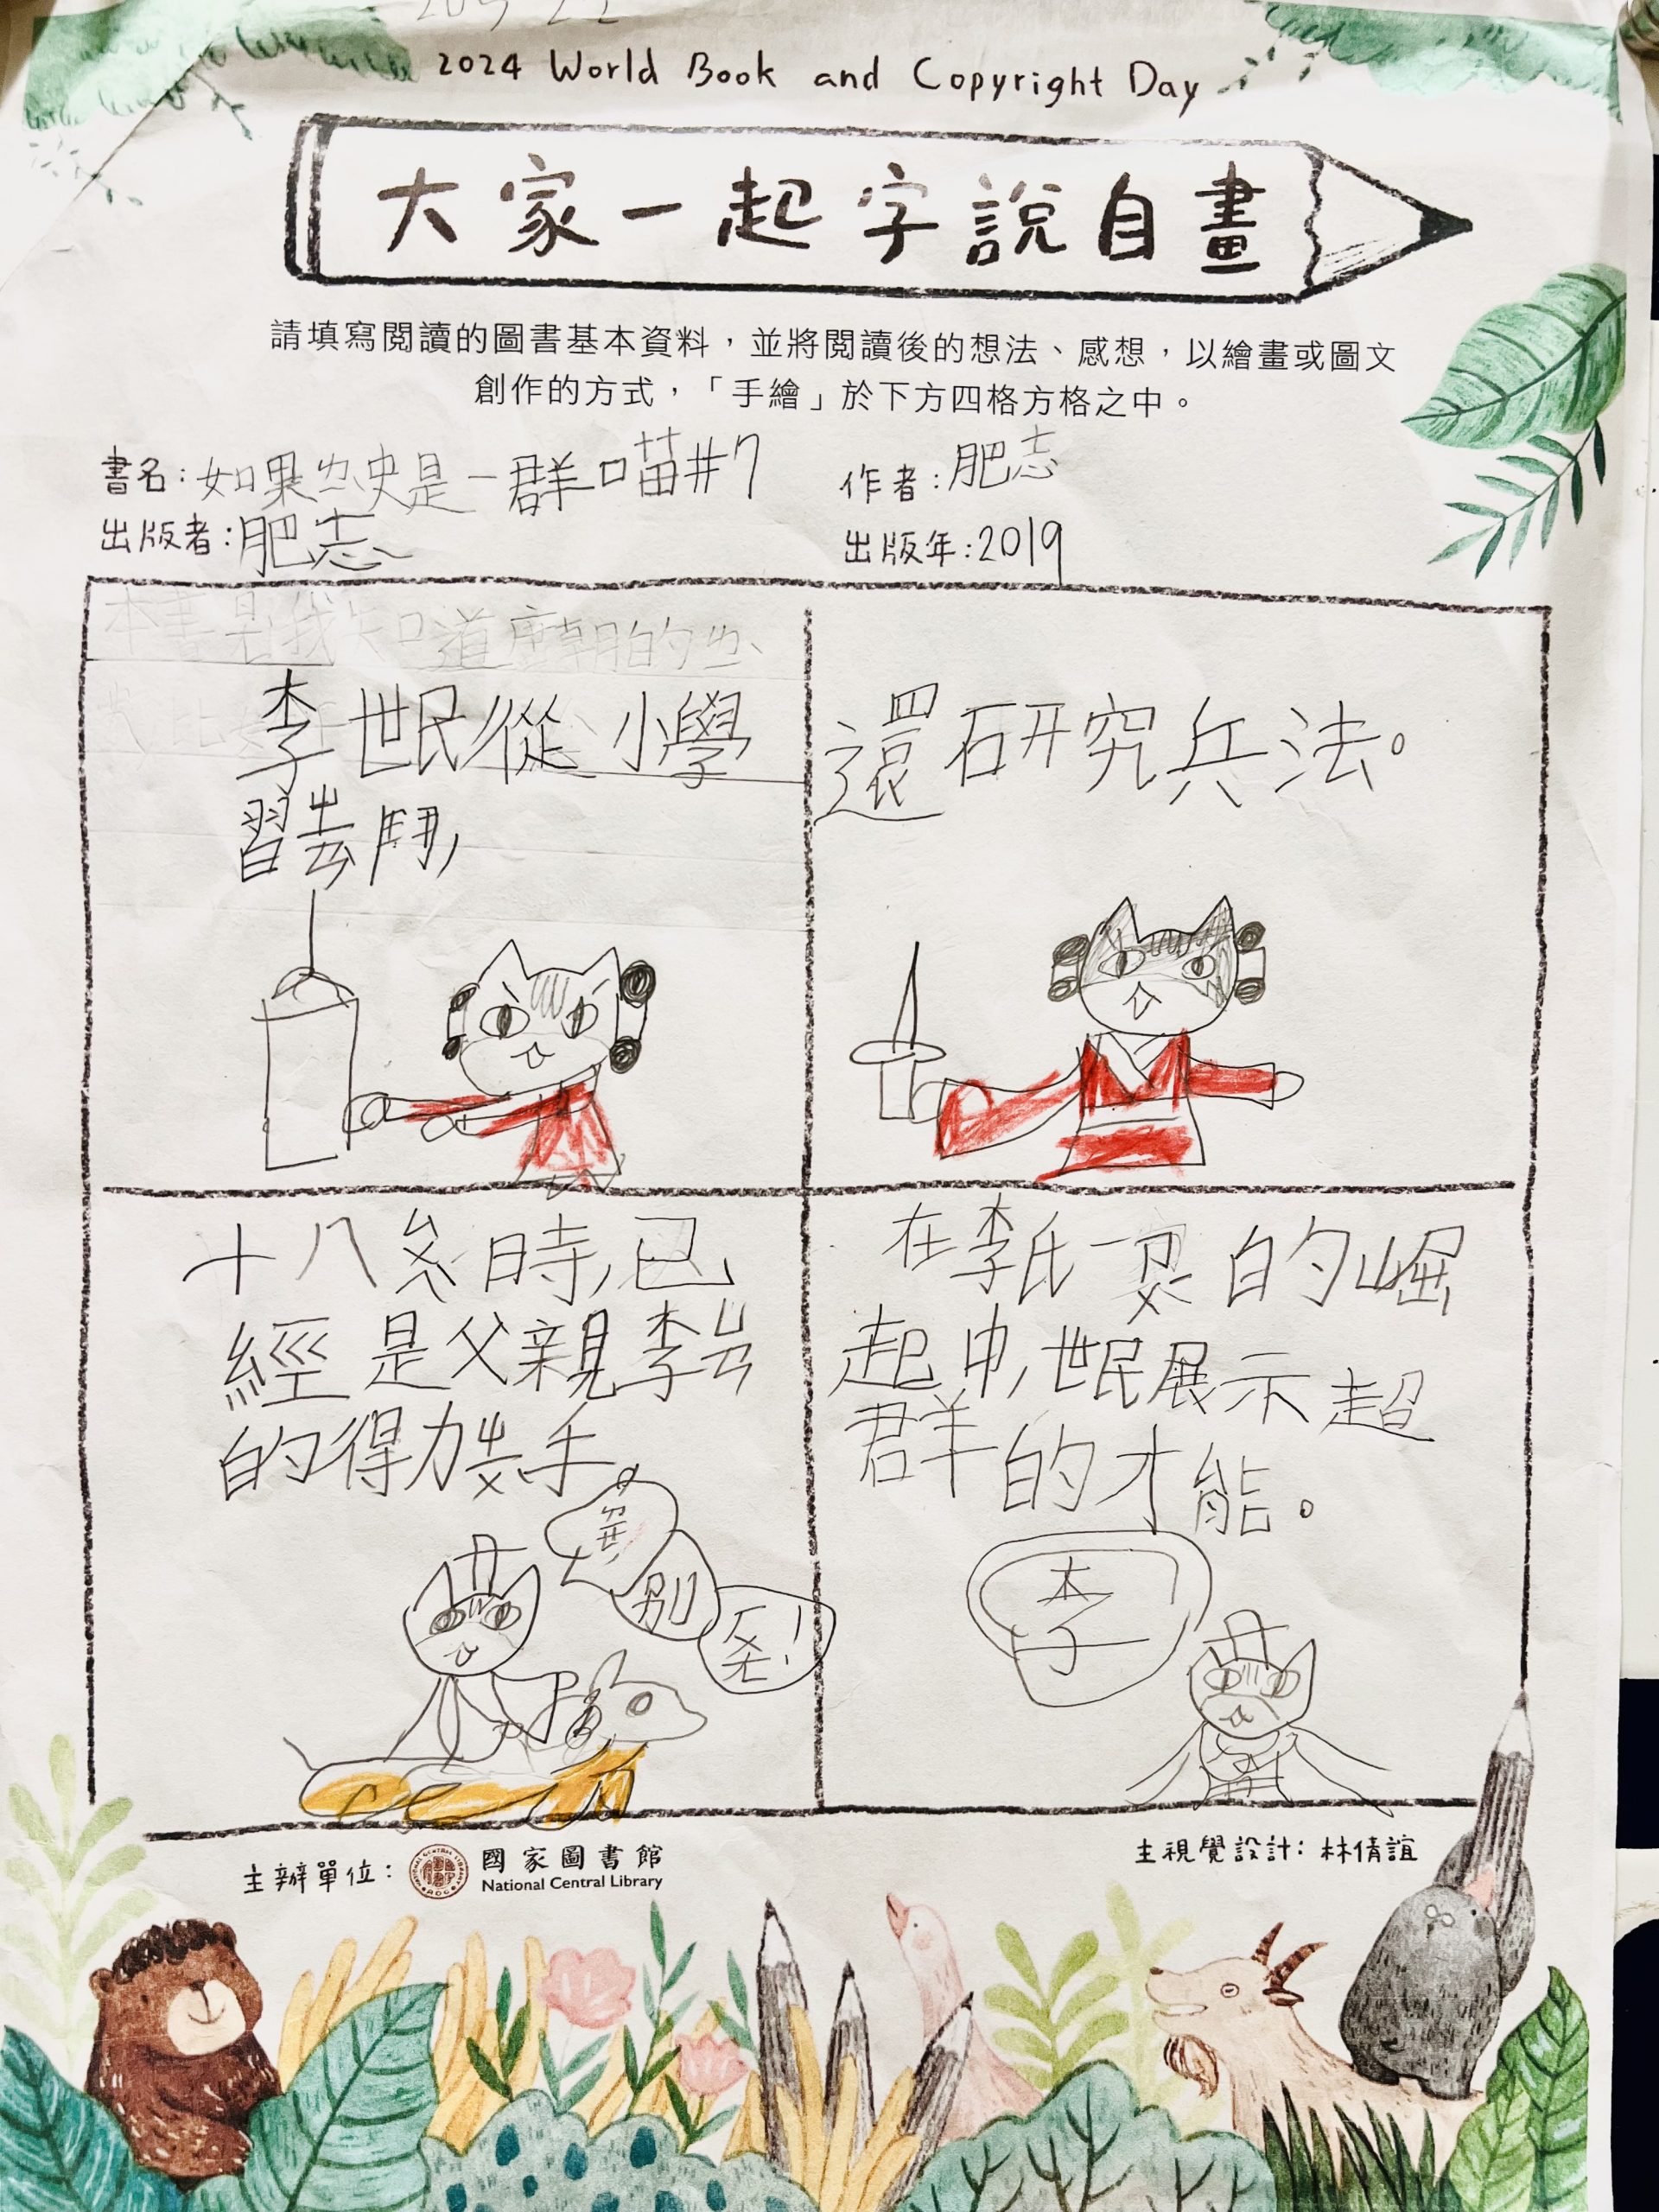 2024 World Book and Copyright Day
大家一起字說自畫
請填寫閱讀的圖書基本資料，並將閱讀後的想法、感想，以繪畫或圖文
創作的方式，「手繪」於下方四格方格之中。
書名：如果ㄌㄧˋ史是一群喵#7
作者：肥志
出版者：肥志
出版年：2019
本書是我知道唐朝的ㄌㄧˋ
李世民從小學
習ㄓㄢˋ鬥,
還研究兵法。
十八ㄙㄨㄟˋ時,已
經是父親李ㄩㄢ
的得力ㄓㄨˋ手。
別
在李氏一的崛
起中,世民展示超
群的才能。
李
主辦單位：
國家圖書館
National Central Library
主視覺設計：林倩誼